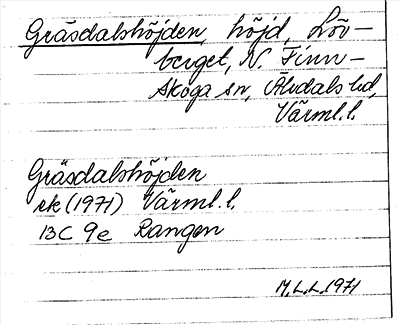 Gräsdalshöjden, höjd, Löv-
berget, N. Finn-
skoga sn, Älvdals hd,
Värml. l.
Gräsdalshöjden
rk (1971) Värml. l.
13C 9e Rangen
M.L.L. 1971